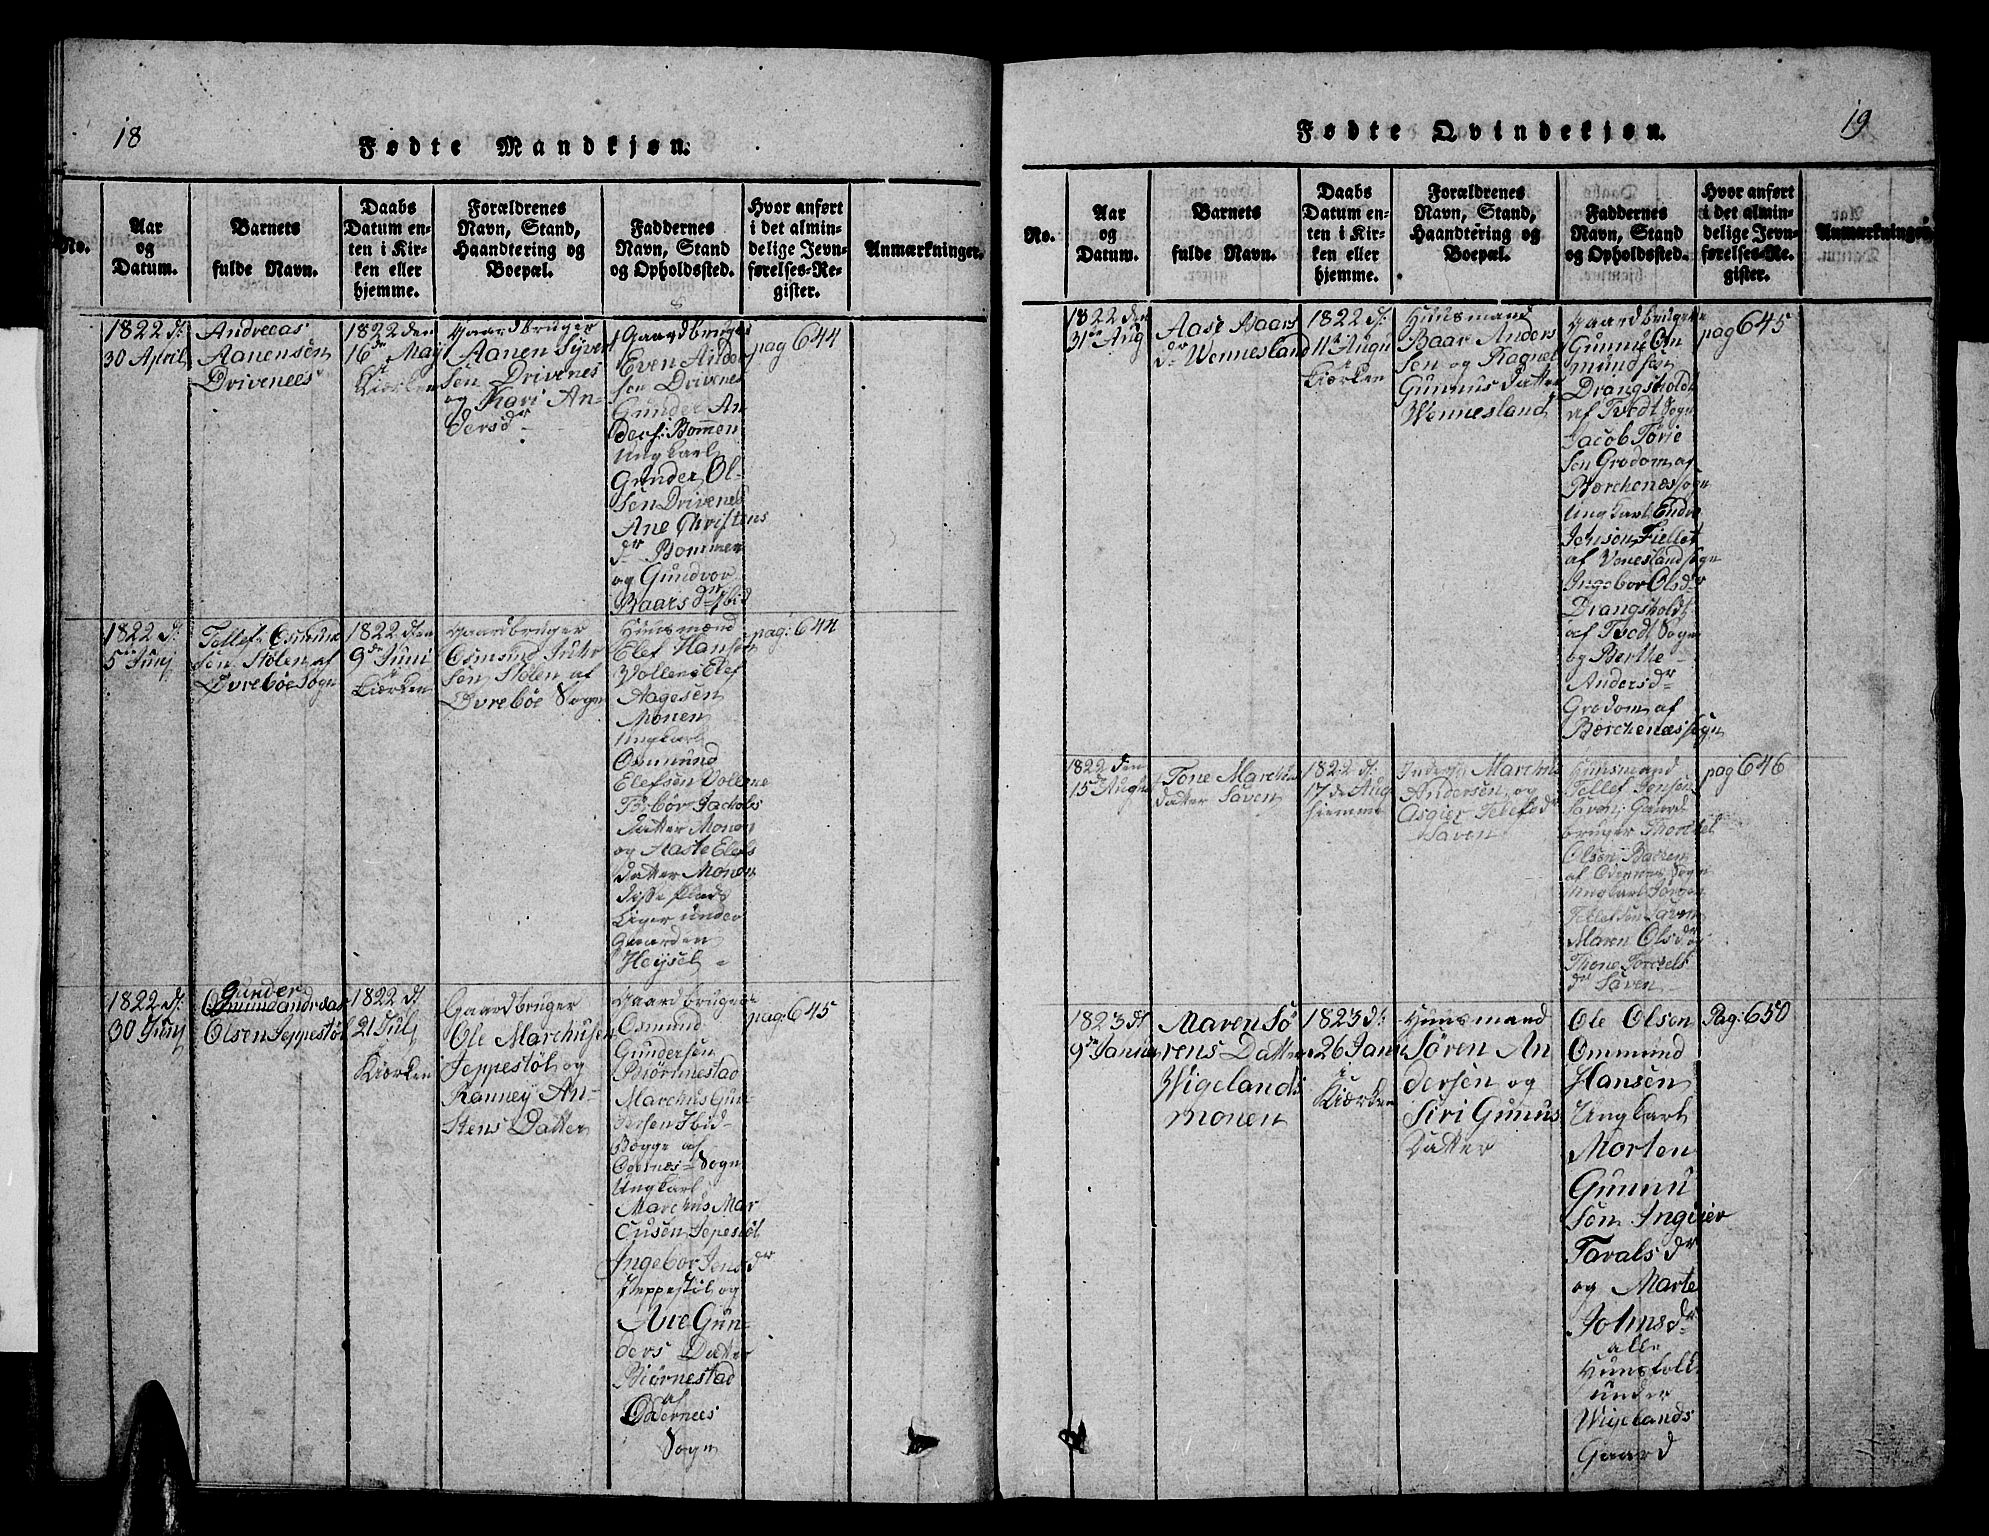 18
Fødte Mandkjøn.
No.
Aar
og
Datum.
Barnets
fulde Navn.
Daabs
Datum en-
ten i Kir-
ken eller
hjemme.
Forældrenes
Navn, Stand,
Haandtering og
Boepæl.
Faddernes
Navn, Stand
og Opholdssted.
Hvor anført
i det almin-
delige Jevn-
førelses-Re-
gister.
Anmærkninger.
1822 d:
30 April
Andreas
Aanensön
Drivenees
1822 den
16de May
Kiærken
Gaardbruger
Aanen Syver
sön Drivenes
og Kari An-
dersdr
Gaardbruger
Even Ander
sen Drivenes
Gunder An
ders: Bommen
Ungkarl
Gunder Ol-
sen Drivenes
Ane Christens
dr Bommen
og Gundvor
Baars dr Ibid
pag 644
1822 d:
5 Junj
Tellef Osmund
sön Stölen af
Øvreböe Sogn
1822 den
9de Juni
Kiærken
Gaardbruger
Osmund
sön Stölen af
Øvreböe Sogn
Huusmænd
Elef Hansen
Vollene Elef
Aagesen
Monen
Ungkarl
Osmund
Elefsen Vollene
Torbör Jachobs
Datter Monen
og Aaste Elefs
datter Monen
disse Plads
Liger under
Gaarden
Heÿsel
pag: 644
1822 d:
30 Junj
Gunder
Olsen Jeppestöl
1822 d:
21 Julj
Kiærken
Gaardbruger
Ole Marchusen
Jeppestöl og
Ranney An-
stens Datter
Gaardbrugere
Osmund
Gundersen
Biörnestad
Marchus Gun
dersen Ibid
Begge af
Odernes Sogn
Ungkarl
Marchus Mar
cusen Jepestöl
Ingebor Jens dr
Jeppestöl og
Ane Gun-
ders Datter
Biörnestad
af
Odernees
Sogn
pag: 645
19
Fødte Qvindekjøn.
No.
Aar
og
Datum.
Barnets
fulde Navn.
Daabs
Datum en-
ten i Kir-
ken eller
hjemme.
Forældrenes
Navn, Stand,
Haandtering og
Boepæl.
Faddernes
Navn, Stand
og Opholdssted.
Hvor anført
i det almin-
delige Jevn-
førelses-Re-
gister.
Anmærkninger.
1822 den
31te Aug
Aase Baars
dr Wennesland
1822 d:
11te Augu
Kiærken
Huusmand
Baar Anders
sen og Ragnel
Gunnus datter
Wennesland
Gaardbrugere
Gunnu On
mundsen
Drangsholdt
af Tvedt Sogn
Jacob Törje
sen Grodom af
Bærchenæs sogn
Ungkarl Endre
Johnsen Fiellet
af Venesland sogn
Ingebor Olsdr
Drangsholdt
af Tvedt Sogn
og Berthe
Andersdr
Grodom af
Bærchenæs sogn
pag 645
1822 den
15de Augu
Tone Marchus
datter Saven
1822 d:
17de Aug
hiemme
Marchus
Andersen og
Asgier Telefsdr
Saven
Huusmand
Tellef Jensen
Saven: Gaard
bruger Thorkel
Olsen
af Odernes Sogn
Ungkarl Jörgen
Tellefsen Saven
Maren Olsdr og
Thone Torchels
dr Saven
pag 646
1823 d:
9de Janua
Maren Sö
rens Datter
Wigelands
monen
1823 d:
26 Janu
i
Kiærken
Huusmand
Sören An
dersen og
Siri Gunus
Datter
Ole Olsen
Ommund
Hansen
Ungkarl
Morten
Gunnu
sön Ingeier
Tarals dr
og Marte
Johnsdr
alle
Huusfolk
under
Wigelands
Gaard
Pag: 650